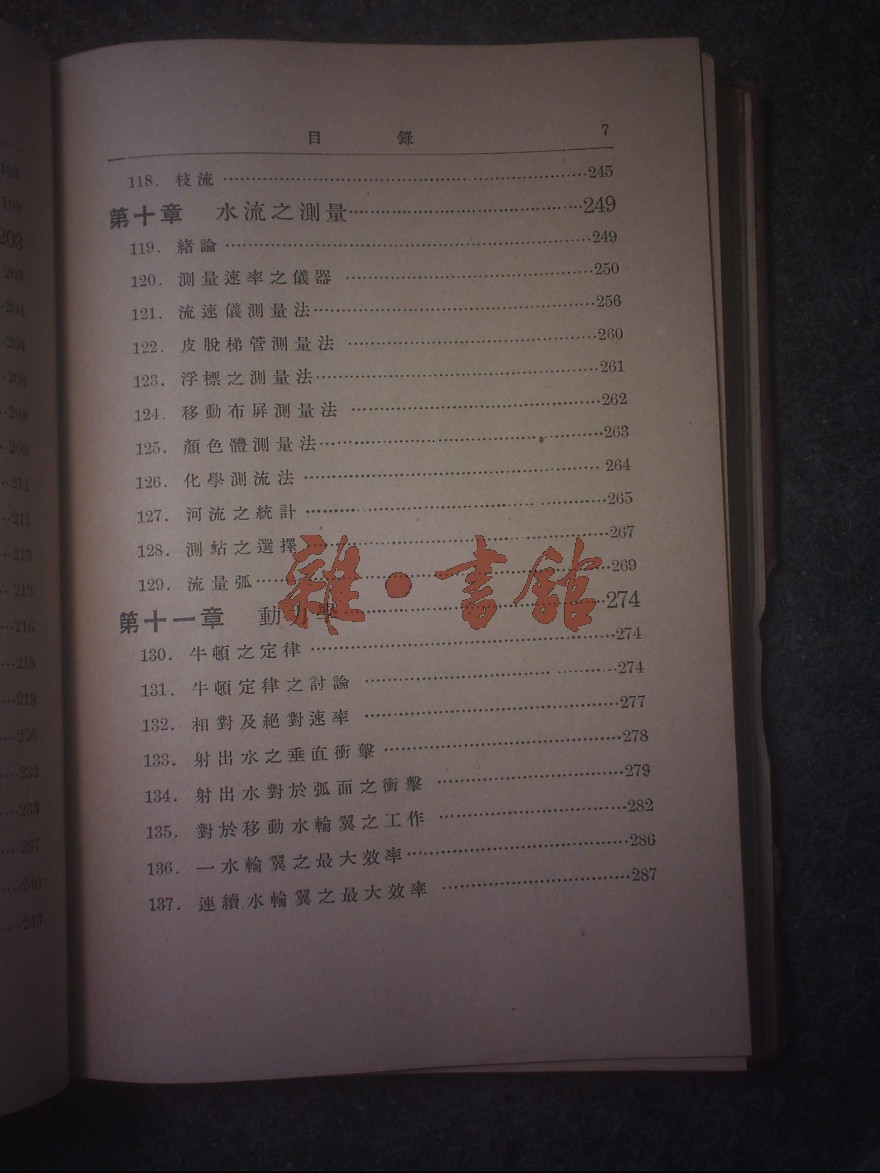 目錄 7
118. 枝流 245
第十章 水流之測量 249
119. 緒論 249
120. 測量速率之儀器 250
121. 流速儀測量法 256
122. 皮脫梯管測量法 260
123. 浮標之測量法 261
124. 移動布屏測量法 262
125. 顏色體測量法 263
126. 化學測流法 264
127. 河流之統計 265
128. 測站之選擇 267
129. 流量弧 269
雜·書館
第十一章 動力學 274
130. 牛頓之定律 274
131. 牛頓定律之討論 274
132. 相對及絕對速率 277
133. 射出水之垂直衝擊 278
134. 射出水對於弧面之衝擊 279
135. 對於移動水輪翼之工作 282
136. 一水輪翼之最大效率 286
137. 連續水輪翼之最大效率 287
203
203
204
204
211
212
213
213
216
218
219
226
232
233
237
240
243